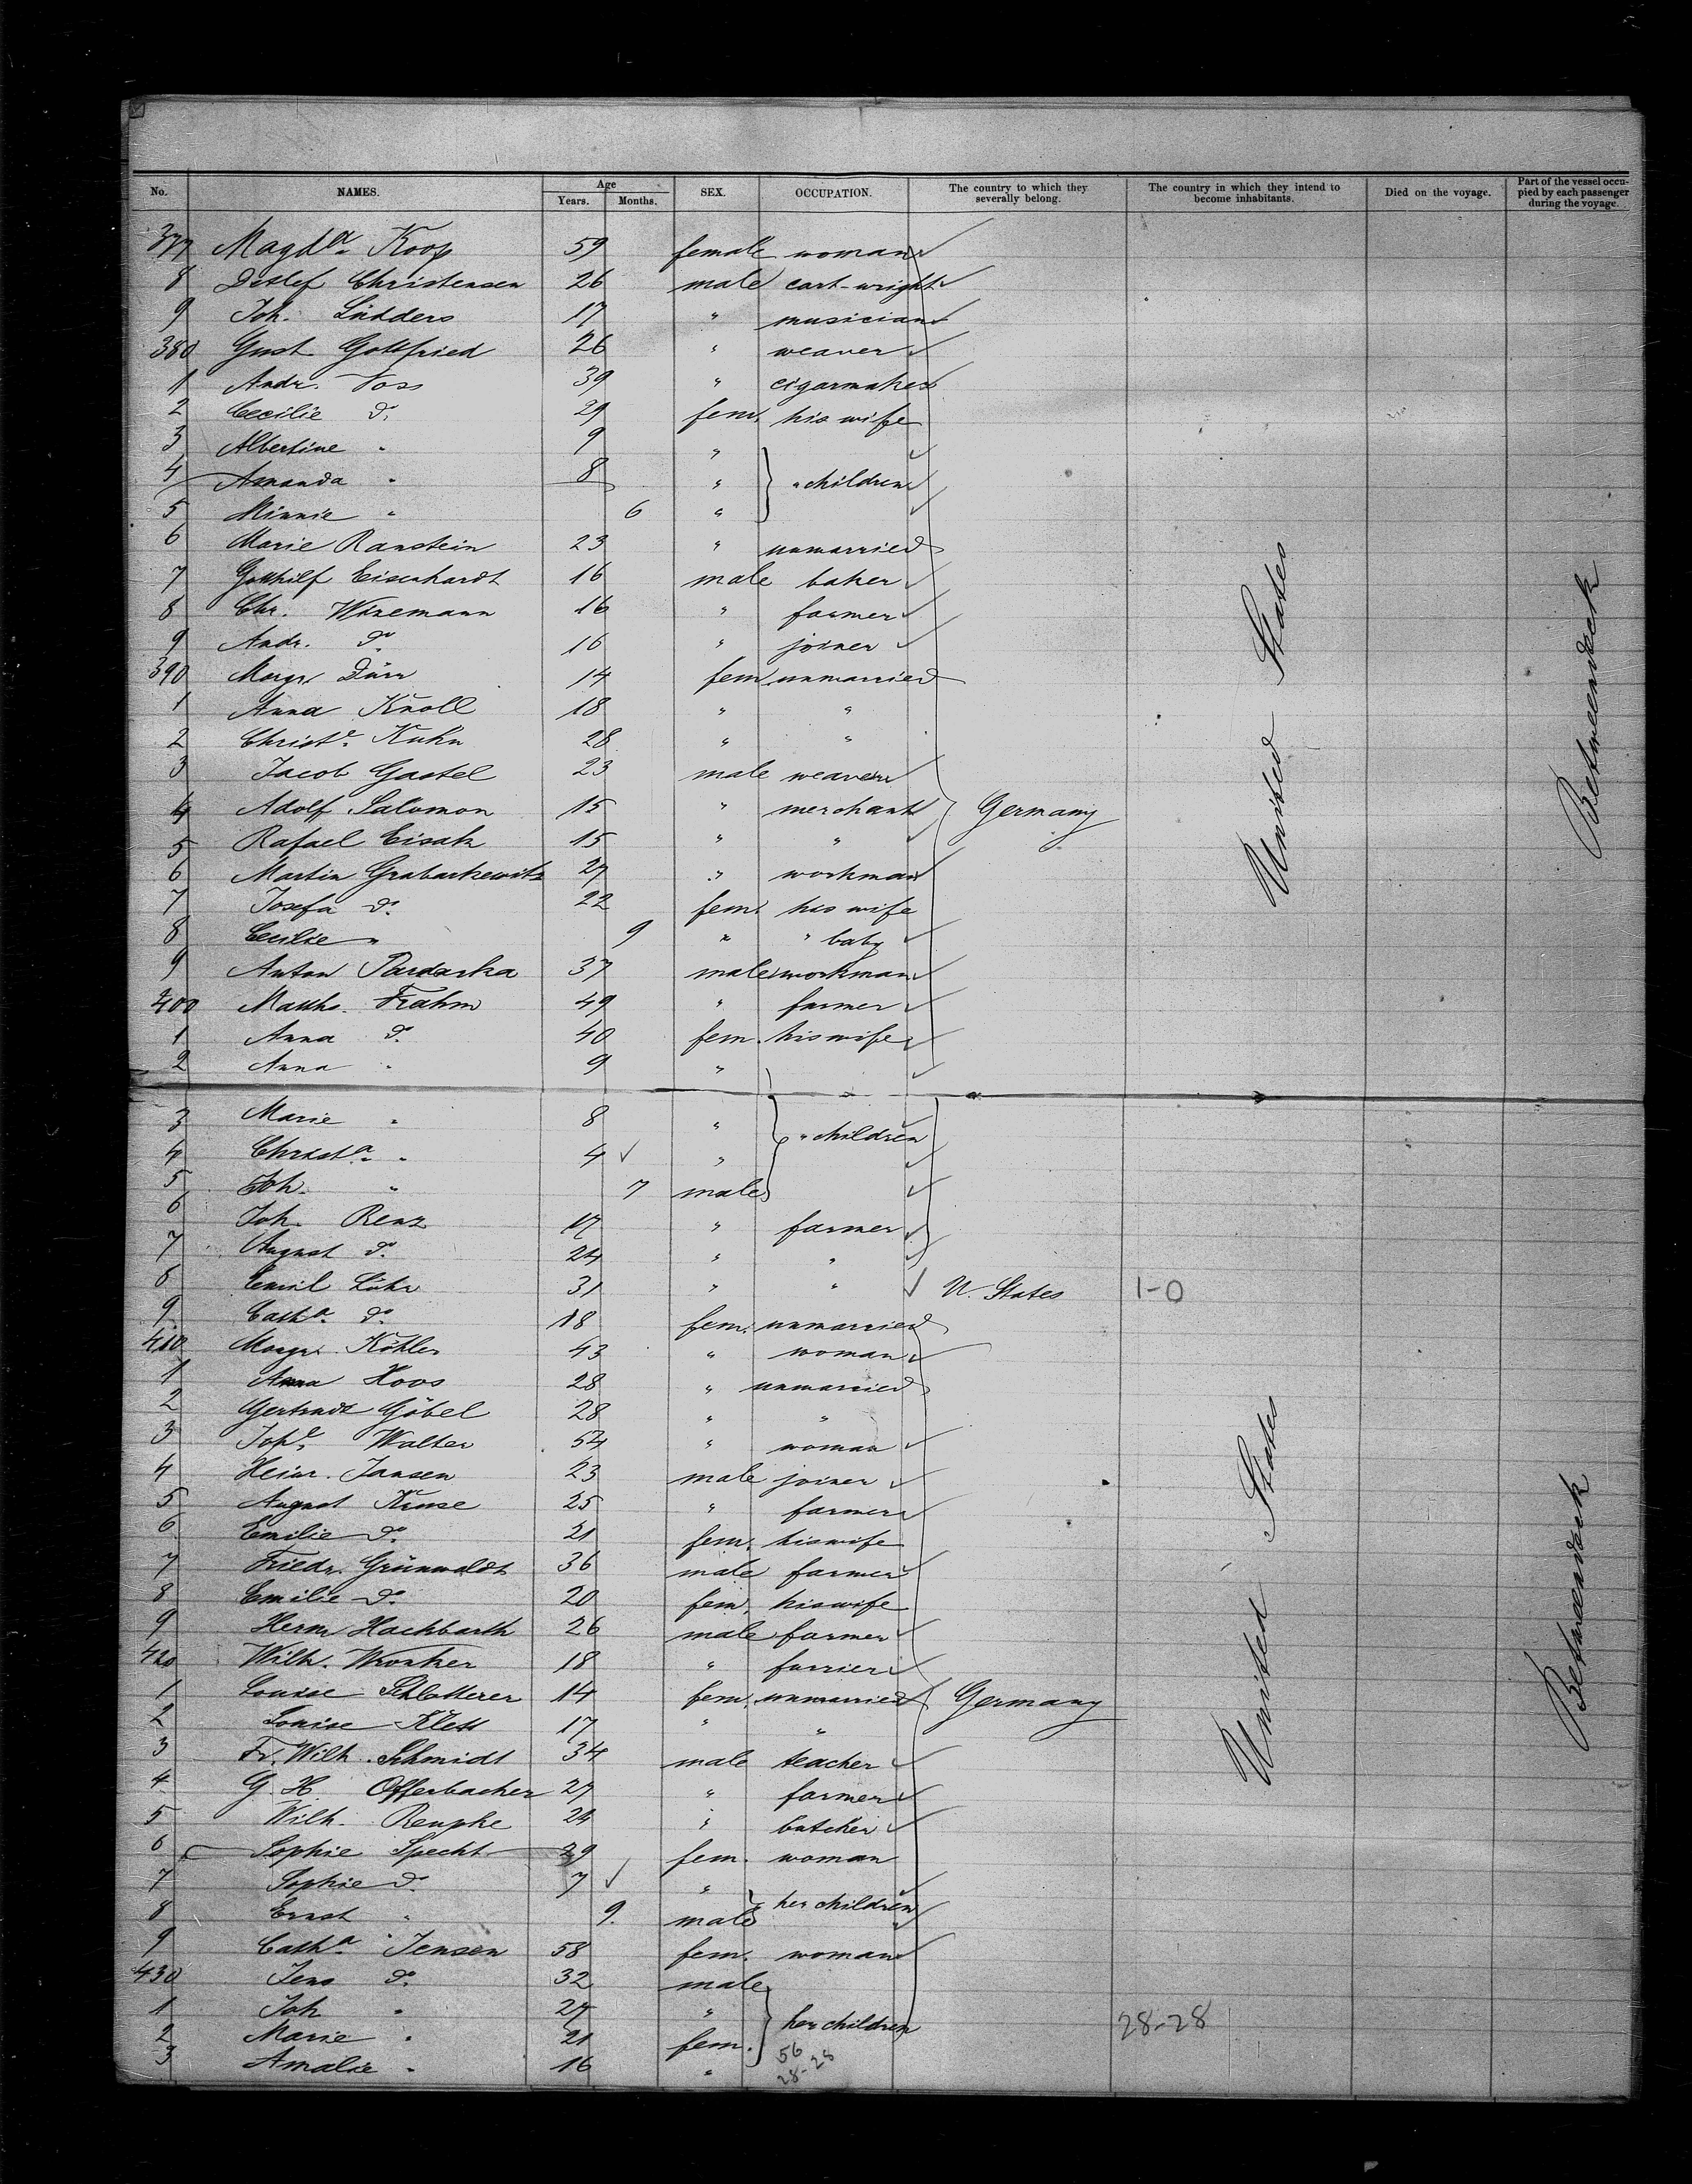 No. NAMES. Age Years. Months. SEX. OCCUPATION. The country to which they severally belong. The country in which they intend to become inhabitants. Died on the voyage. Part of the vessel occupied by each passenger during the voyage.
377 Magda. Koop 59 female woman
8 Detlef Christensen 26 male cart-wright
9 Joh. Lüdders 17 " musician
380 Gust. Gottfried 26 " weaver
1 Andr. Voss 39 " cigarmaker
2 Cecilie do. 29 fem. his wife
3 Albertine " 9 "
4 Amanda " 8 " " children
5 Minnie " 6 "
6 Marie Ranstein 23 " unmarried
7 Gotthilf Eisenhardt 16 male baker
8 Chr. Wizemann 16 " farmer
9 Andr. do. 16 " joiner
390 Margr. Dürr 14 fem. unmarried
1 Anna Knoll 18 " "
2 Christe. Kuhn 28 " "
3 Jacob Gastel 23 male weaver
4 Adolf Salomon 15 " merchant Germany
5 Rafael Eisak 15 " "
6 Martin Grabarkewitz 27 " workman
7 Josefa do. 22 fem. his wife
8 Cecilie " 9 " " baby
9 Anton 37 male workman
400 Matths. Frahm 49 " farmer
1 Anna do. 40 fem. his wife
2 Anna " 9 "
United States
Betweendeck
3 Marie " 8 " " children
4 Christa. " 4 "
5 Joh. " 7 male
6 Joh. Renz 17 " farmer
7 August do. 24 " "
8 Emil Löhr 31 " " U. States 1-0
9 Catha. do. 18 fem. unmarried
410 Margr. Köhler 43 " woman
1 Anna Hoos 28 " unmarried
2 Gertrude Göbel 28 " "
3 Johe. Walter 54 " woman
4 Heinr. Jansen 23 male joiner
5 August Kruse 25 " farmer
6 Emilie do. 21 fem. his wife
7 Friedr. Grünwaldt 36 male farmer
8 Emilie do. 20 fem. his wife
9 Herm. Hackbarth 26 male farmer
420 Wilh. Wronker 18 " furrier
1 Louise Schlotterer 14 fem. unmarried Germany
2 Louise Kless 17 " "
3 Fr. Wilh. Schmidt 34 male teacher
4 G. H. Offerbacher 27 " farmer
5 Wilh. Reupke 24 " butcher
6 Sophie Specht 29 fem. woman
7 Sophie do. 7 "
8 Ernst " 9 male her children
9 Catha. Jensen 58 fem. woman
430 Jens do. 32 male
1 Joh " 27 " her children 28-28
2 Marie " 21 fem.
3 Amalie " 16 "
56
28-28
United States
Betweendeck